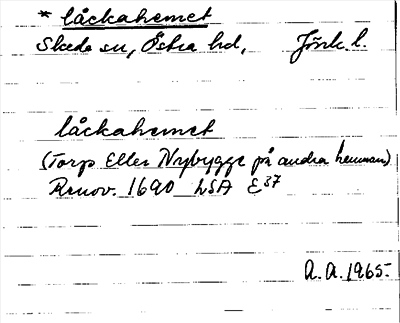 * låckahemet
Skeda sn, Östra hd, Jönk. l.
låckahemet
(Torp Eller Nybygge på andra hemman)
Renov. 1690 LSA E37
A. A. 1965.